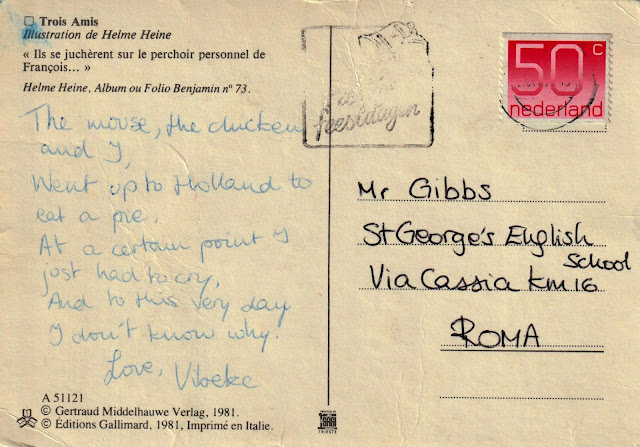 Trois Amis
Illustration de Helme Heine
« Ils se juchèrent sur le perchoir personnel de
François... »
Helme Heine, Album ou Folio Benjamin nº 73.
The mouse, the chicken
and I,
Went up to Holland to
eat a pie.
At a certain point I
just had to cry,
And to this very day
I don't know why.
Love, Vibeke
A 51121
© Gertraud Middelhauwe Verlag, 1981.
© Editions Gallimard, 1981, Imprimé en Italie.
feestdagen
50 c
nederland
Mr Gibbs
St George's English
School
Via Cassia km 16
ROMA
TRIESTE